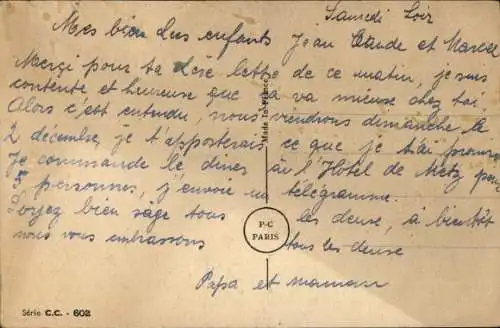 Samedi Soir
Mes bien chers enfants Jean Claude et Marcel
Merci pour ta chère lettre de ce matin, je suis
contente et hureuse que ça va mieuse chez toi.
Alors c'est entendu, nous viendrons dimanche le
2 décembre, je t'apporterais ce que je t'ai promis
Je commande le diner à l'Hôtel de Metz pour
5 personnes, j'envoie un télégramme.
Soyez bien sage tous les deuse, à bientôt
nous vous embrassons tous les deuse
Papa et maman
Made in France
P-C
PARIS
Série C.C. - 602